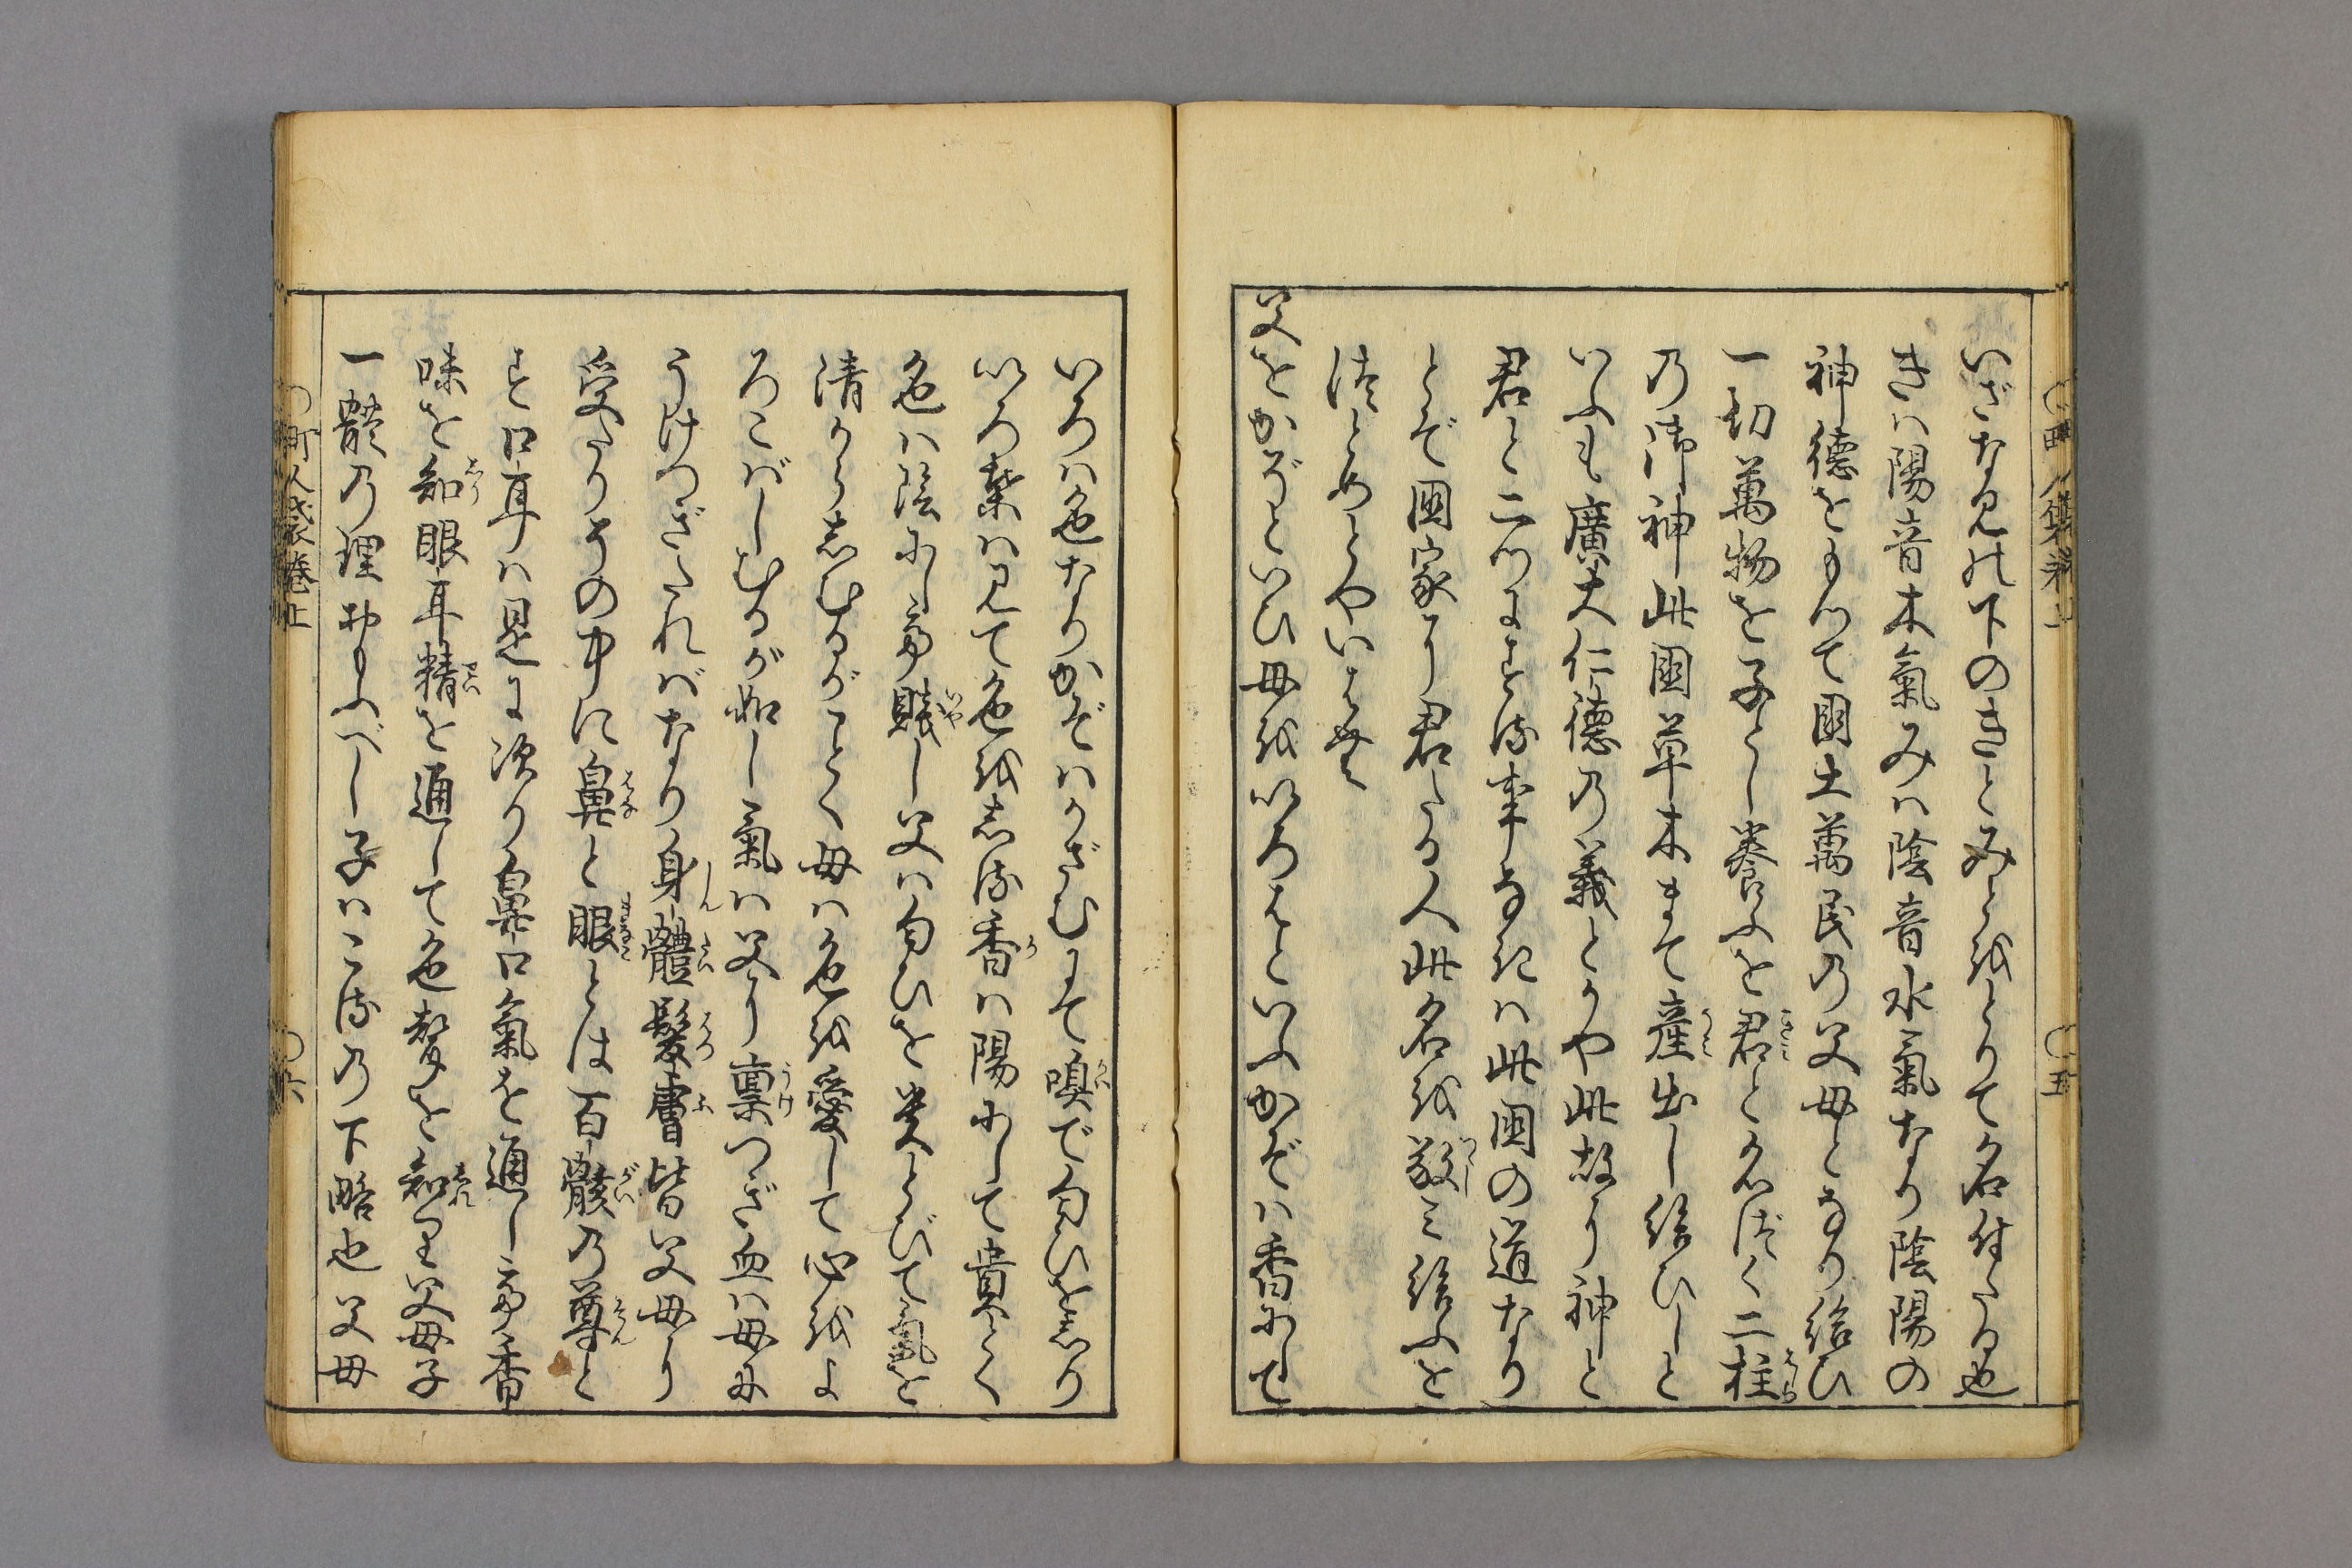 いざなみの下のきとみとをとりて名付たる也
きハ陽音木氣みハ陰音水氣なり陰陽の
神徳をもつて国土萬民の父母となり給ひ
一切萬物を子とし養ふを君と名づく二柱
の御神此国草木まて産出し給ひしと
いふも廣大仁徳の義とかや此故に神と
君と二つにする事なきハ此国の道なり
とぞ国家に君たる人此名を敬ミ給ふを
つとめとやいはん
父をかぞといひ母をいろはといふかぞハ香にして
いろハ色なりかぞハかざむにて嗅で匂ひをしり
いろ葉ハ見て色をしる香ハ陽にして貴とく
色ハ陰にして賤し父ハ匂ひを美とびて氣を
清からしむるがことく母ハ色を愛して心をよ
ろこばしむるが如し氣ハ父に禀つぎ血ハ母に
うけつぎたればなり身體髪膚皆父母に
受たりその中に鼻と眼とは百骸の尊と
き口耳ハ是に次り鼻口氣を通して香
味を知眼耳精を通して色聲を知る父母子
一體の理おもふべし子ハこるの下略也父母
町人袋巻一
五
町人袋巻一
六